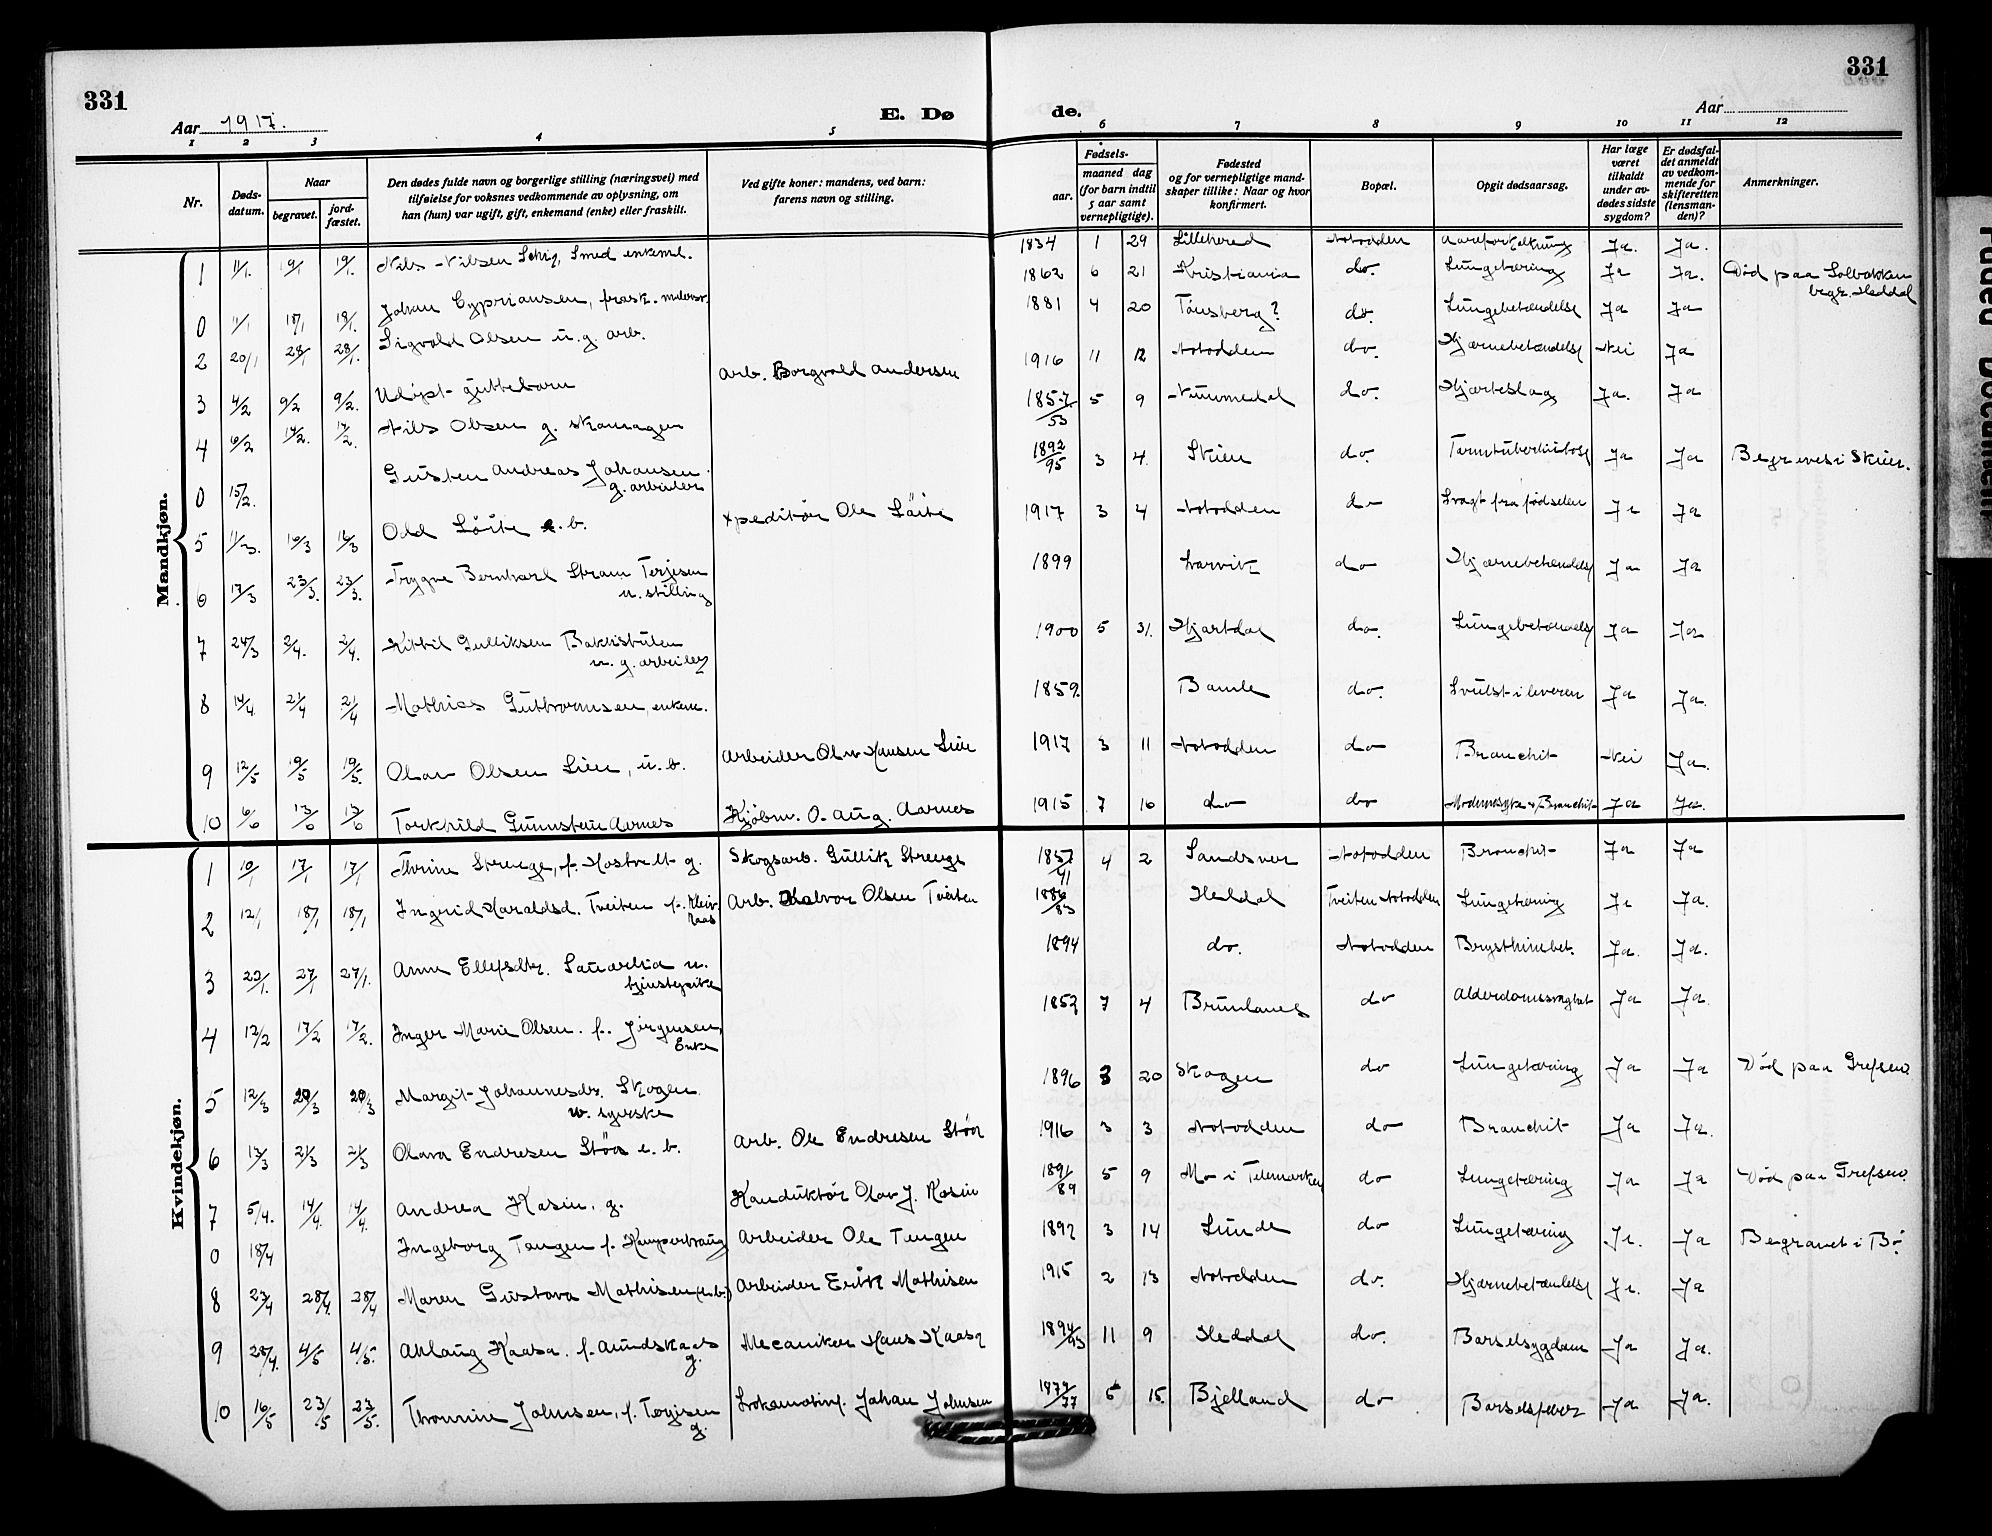 331
331
Aar 1917.
E. Dø
de.
Aar
1 2 3 4 5 6 7 8 9 10 11 12
Nr.
Døds-
datum.
Naar
begravet.
jord-
fæstet.
Den dødes fulde navn og borgerlige stilling (næringsvei) med
tilføielse for voksnes vedkommende av oplysning, om
han (hun) var ugift, gift, enkemand (enke) eller fraskilt.
Ved gifte koner: mandens, ved barn:
farens navn og stilling.
Fødsels-
aar.
maaned dag
(for barn indtil
5 aar samt
vernepligtige).
Fødested
og for vernepligtige mand-
skaper tillike: Naar og hvor
konfirmert.
Bopæl.
Opgit dødsaarsag.
Har læge
været
tilkaldt
under av-
dødes sidste
sygdom?
Er dødsfal-
det anmeldt
av vedkom-
mende for
skifteretten
(lensman-
den)?
Anmerkninger.
Mandkjøn.
1 11/1. 19/1 19/1. Nils Nilsen Smed enkem. 1834 1 29 Lilleherred Notodden Aareforkalkning Ja. Ja.
0 11/1 18/1 18/1. Johan Cypriansen, frask. 1862 6 21 Kristiania do. Lungetæring Ja Ja. Død paa Solbakken
begr. Heddal
2 20/1 28/1 28/1. Sigvald Olsen u.g. arb. 1881 4 20 Tønsberg? do. Lungebetændelse Ja Ja
3 4/2 9/2 9/2. Udøpt guttebarn Arb. Borgvald Andersen 1916 11 12 Notodden do. Hjærnebetændelse Nei Ja
4 6/2 14/2. 14/2. Nils Olsen g. skomager 1857/53 5 9 Nummedal do. Hjærteslag Ja. Ja
0 15/2. Gusten Andreas Johansen
g. arbeider 1892/95 3 4. Skien do. Tarmtuberkulose Ja Ja Begraves i Skien.
5 11/3. 16/3 16/3 Odd Löite e.b. Expeditør Ole Löite 1917 3 4 Notodden do Svagt fra fødselen Ja Ja
6 17/3 23/3. 23/3. Trygve Bernhard Strøm Terjesen
u. stilling 1899 Larvik do Hjærnebetændelse Ja Ja
7 24/3 2/4. 2/4. Kittil Gulliksen
u. g. arbeider 1900 5 31. Hjartdal do. Lungebetændelse Ja Ja
8 14/4. 21/4 21/4 Mathias Guttormsen, enkem. 1859. Bamle do. Svulst i leveren Ja Ja.
9 12/5 19/5 19/5. Olav Olsen Lien, u.b. Arbeider Olav Hansen Lien 1917 3 11 Notodden do Bronchit Nei Ja.
10 6/6 13/6 13/6 Torkhild Gunnstein Aarnes Kjøbm. O. Aug. Aarnes 1915 7 16 do do Bronchit Ja Ja.
Kvindekjøn.
1 10/1 17/1 17/1 Thrine Strenge, f. g. Skogsarb. Gullik Strenge 1857/41 4 2 Sandsver Notodden Bronchit Ja Ja
2 12/1 18/1 18/1 Ingrid Haraldsd. Tveiten f. Arb. Halvor Olsen Tveiten 1886/83 Heddal Tveiten Notodden Lungetæring Ja Ja.
3 22/1. 27/1 27/1. Anne Ellefsdtr. u.
tjenestepike 1894 do. Notodden Brysthindebet. Ja. Ja.
4 12/2 17/2 17/2. Inger Marie Olsen. f. Jørgensen,
Enke 1852 7 4 Brunlanes do Alderdomssvaghet Ja Ja.
5 12/3 20/3 20/3 Margit Johannesdr. Skogen
u. syerske 1896 3 20 Skogen do Lungetæring Ja Ja Død paa Grefsen
6 13/3 21/3 21/3 Olava Endresen Stöa e.b. Arb. Ole Endresen Stöa 1916 3 3 Notodden do Bronchit Ja Ja.
7 5/4. 14/4. 14/4. Andrea Kasin. g. Konduktør Olav J. Kasin 1891/89 5 9 Mo i Telemarken do Lungetæring Ja Ja Død paa Grefsen
0 18/4 Ingeborg Tangen f. Arbeider Ole Tangen 1892 3 14 Lunde do Lungetæring Ja. Ja Begravet i Bø
8 23/4 28/4. 28/4 Maren Gustava Mathisen (e.b.) Arbeider Erik Mathisen 1915 2 13 Notodden do. Hjærnebetændelse Ja. Ja
9 28/4. 4/5 4/5. Aslaug Kaasa. f.
g. Mecaniker Hans Kaasa 1894/93 11 9 Heddal do. Barselsygdom Ja Ja.
10 16/5 23/5 23/5. Thronine Johnsen, f. Terjesen
g. Lokomotivf. Johan Johnsen 1879/77 5 15. Bjelland do Barselfeber Ja Ja.
Faded Document